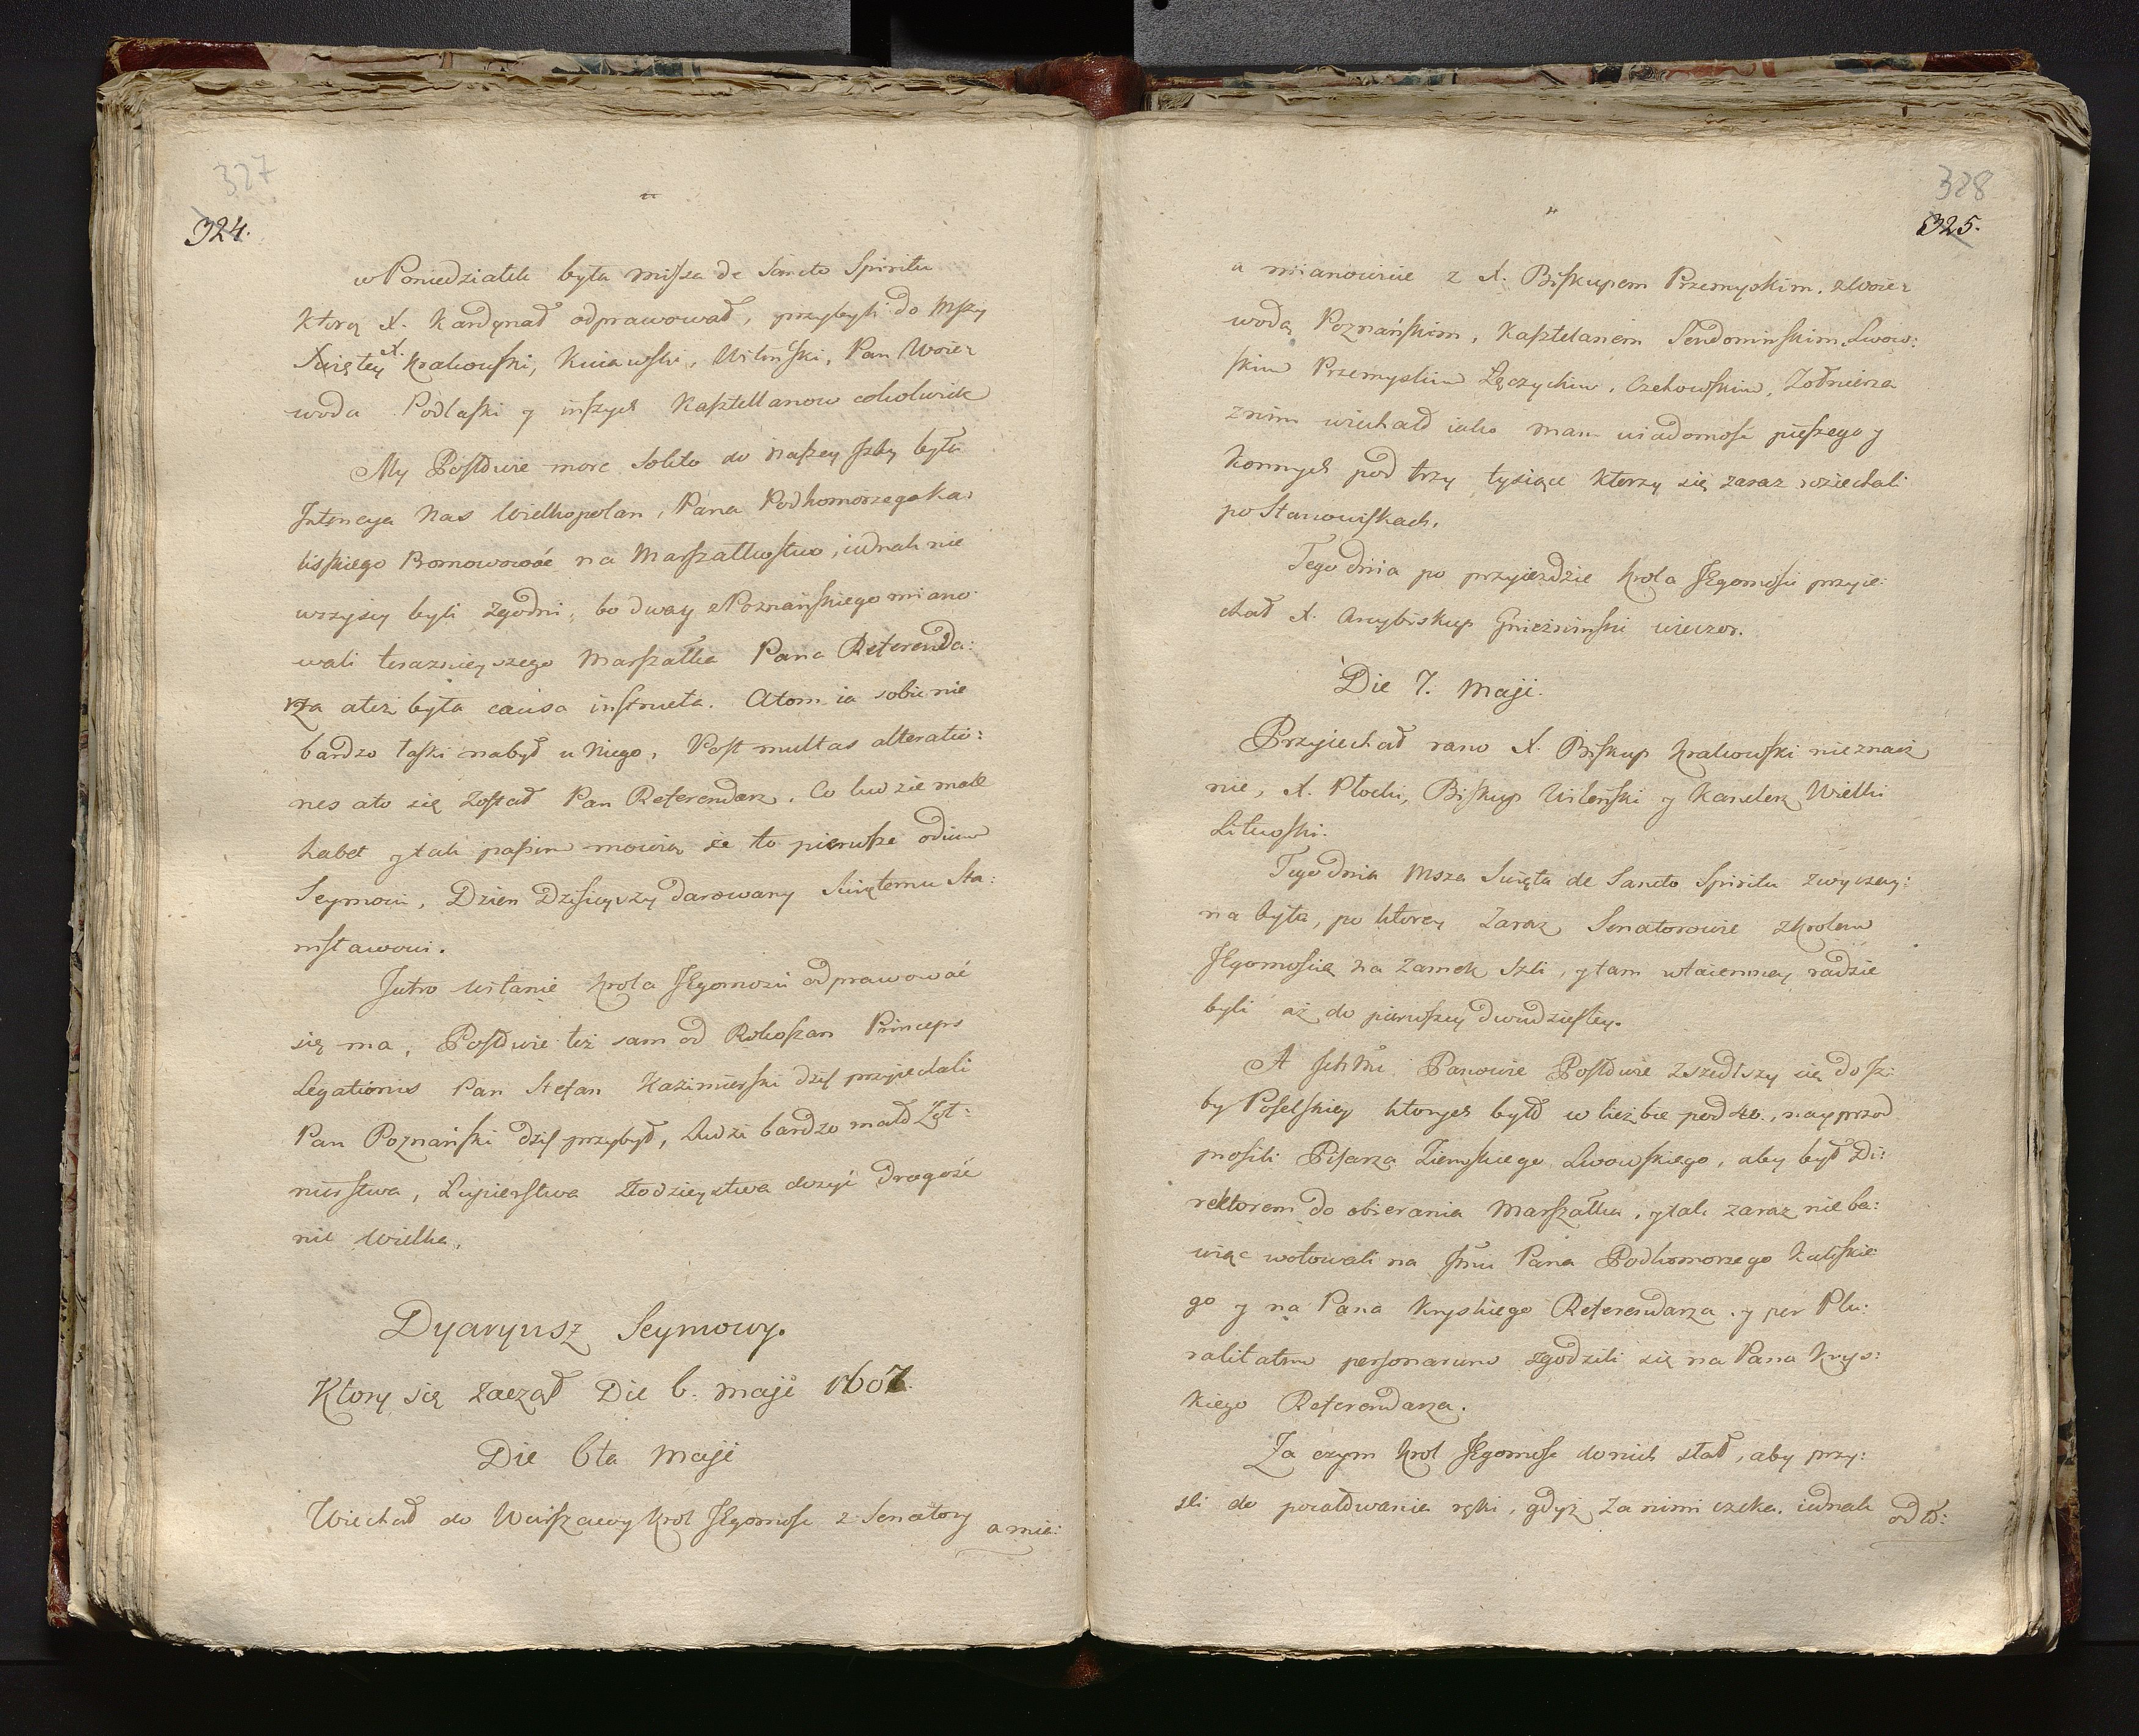 327
324.
w Poniedziałek była missza de Sancto Spiritu
Ktorą X. Kardynał odprawował, przybyli do Mszy
Swiętey X. Krakowski, Kuiawski, Wilenski, Pan Woie-
woda Podlaski y inszych Kasztellanow cokolwiek
My Posłowie more solito do naszey Izby była
Intencya Nas Wielkopolan, Pana Podkomorzego Ka-
liskiego Promowować na Marszałkostwo, iednak nie
wszyscy byli zgodni, bo dway z Poznańskiego miano-
wali teraznieyszego Marszałka Pana Referenda:
rza ateż była causa instructa. Atom ia sobie nie
bardzo łaski nabył u Niego, Post multas alteratio:
nes ato się został Pan Referendarz. Co ludzie male
habet y tak passim mowią że to pierwsze odium
Seymowi, Dzien Dzisieyszy darowany Swiętemu Sta:
nisławowi.
Jutro witanie Krola JEgomości odprawować
się ma, Posłowie też sam od Rokoszan Princeps
Legationis Pan Stefan Kazimirski dziś przyiechali
Pan Poznański dziś przybył, Ludzi bardzo mało Żoł:
nierstwa, Łupierstwa złodzieystwa dosyć drogość
nie wielka,
Dyaryusz Seymowy.
Ktory się zaczął Die 6. maji 1607.
Die 6ta Maji
Wiechał do Warszawy Krol JEgomość z Senatory
a mia:
328
325.
a mianowicie z X. Biskupem Przemyskim, z Woie-
wodą Poznańskim, Kasztelanem Sendomirskim, Lwow:
skim Przemyskim Łęczyckim, Czchowskim, Żołnierza
z nim wiechało iako mam wiadomość pieszego y
konnych pod trzy tysiące ktorzy się zaraz roziechali
po Stanowiskach.
Tego dnia po przyiezdzie Krola JEgomości przyie:
chał X. Arcybiskup Gnieznienski wieczor.
Die 7. Maji.
Przyiechał rano X. Biskup Krakowski nieznacz
nie, X. Płocki, Biskup Wilenski y Kanclerz Wielki
Litewski.
Tego dnia Msza Swięta de Sancto Spiritu zwyczay:
na była, po ktorey zaraz Senatorowie z Krolem
JEgomością na Zamek szli, y tam w taiemney radzie
byli aż do pierwszey dwudziestey.
A Ichmć Panowie Posłowie zszedłszy się do Iz:
by Poselskiey ktorych było w liczbie pod 40., nayprzod
prosili Pisarza Ziemskiego Lwowskiego, aby był Di:
rektorem do obierania Marszałka, y tak zaraz nie ba:
wiąc wotowali na Jmći Pana Podkomorzego Kaliskie
go y na Pana Kryskiego Referendarza, y per Plu:
ralitatem personarum zgodzili się na Pana Krys:
kiego Referendarza.
Za czym Krol JEgomość do nich słał, aby przy:
szli do pocałowania ręki, gdyż za nimi czeka, iednak
odło: